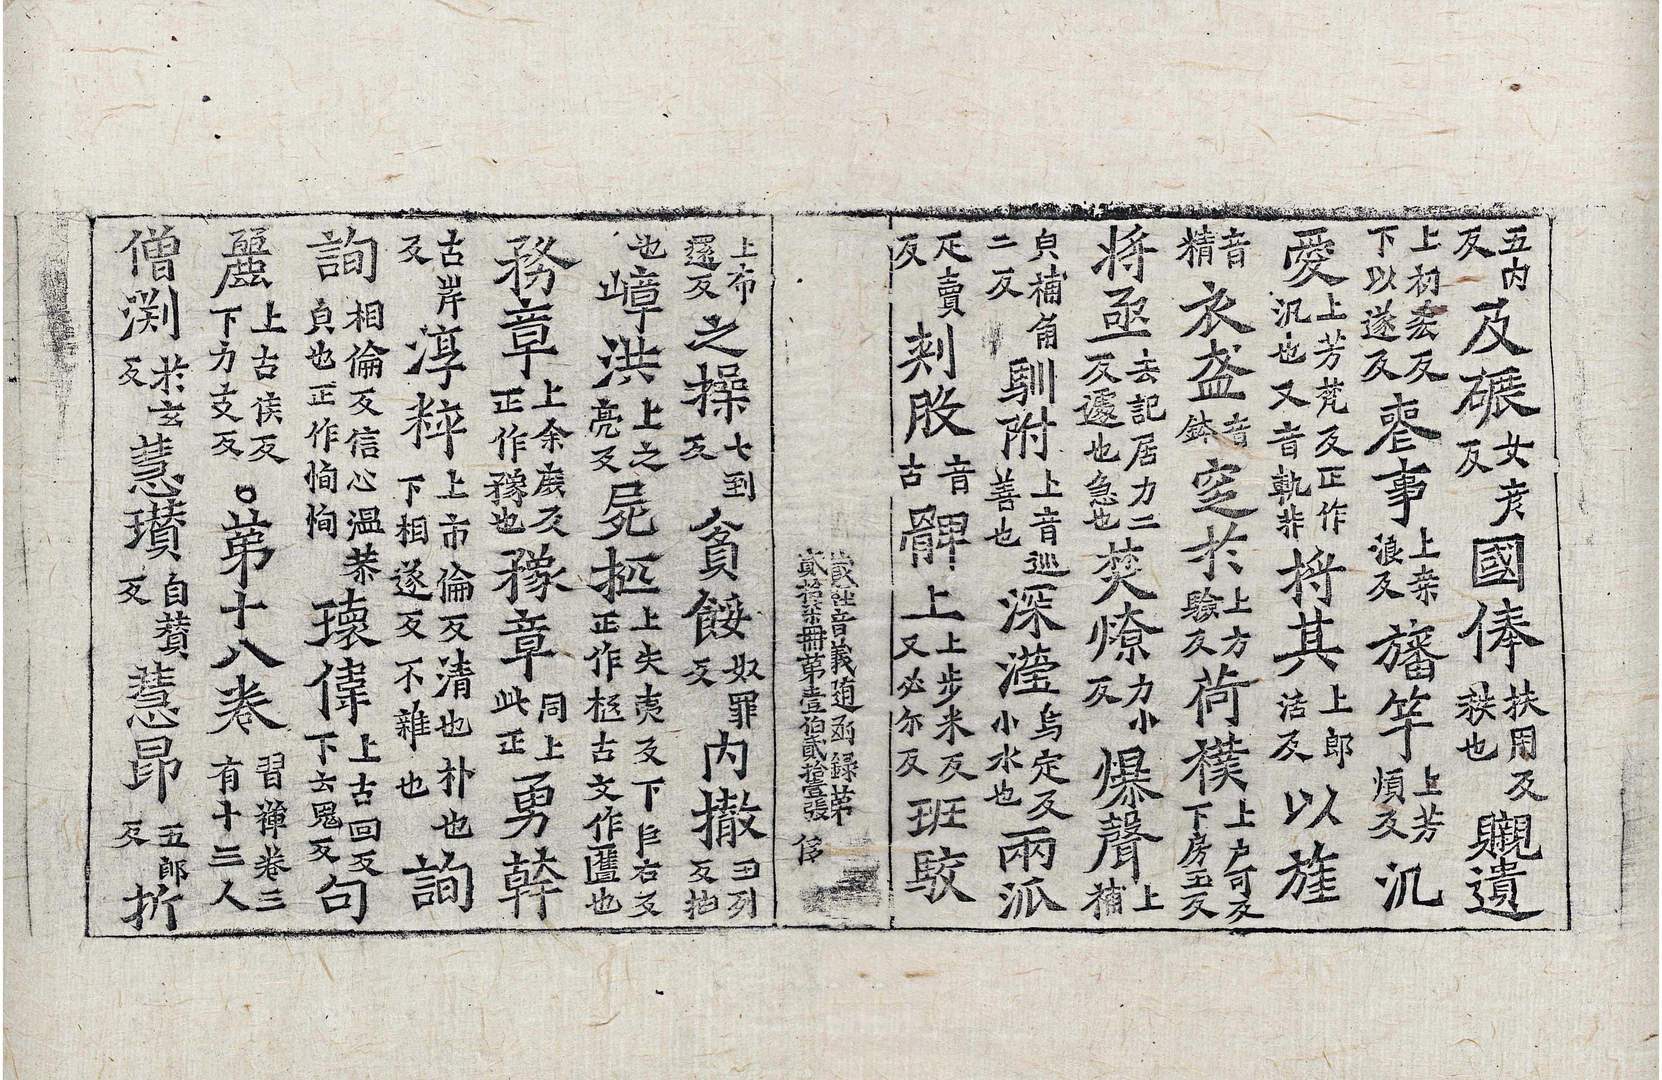 五内反及碾女亥反國俸扶用反秩也覵遺
上初委反下以遂反枣事上来浪反旛竿上芳煩反汎
愛上芳梵反正作汎也又音軌非将其上郎活反以旌
音精衣盔音鉢窆於上方驗反荷襆上戶可反下房玉反
将亟去記居力二反遽也急也焚燎力小反爆聲上補
皃補角二反馴附上音巡善也深瀅烏定反小水也兩派
疋賣反剡股音古髀上上步米反又必尓反班駮
藏經音義随函録第貳拾柒冊第壹伯貳拾壹張
上布還反之操七到反貧餧奴罪反内撤丑列反抽
也嶂洪上之亮反屍柩上失夷反下巨右反正作柩古文作匶也
務章上余庻反正作豫也豫章同上此正勇幹
古岸反淳粹上市倫反清也朴也下相遂反不雜也詢
詢相倫反信心温恭皃也正作恂恂瓌偉上古回反下云鬼反句
麗上古侯反下力支反〇第十八卷習禪卷三有十三人
僧渊於玄反慧瓚自賛反慧昂五郎反折